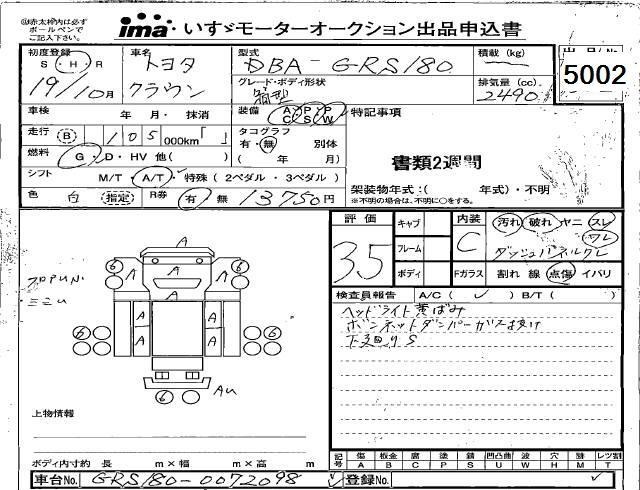 ㊟赤太枠内は必ず
ボールペンで
ご記入下さい。
ima いすゞモーターオークション出品申込書
初度登録
S・H・R
19/10月
車名
トヨタ
クラウン
型式
DBA-GRS180
グレード・ボディ形状
箱型
積載(kg)
排気量(cc)
2490
出品No.
5002
車検 年 月・抹消
装備 A/C P/S P/W
特記事項
走行 B 105 000km「 」
タコグラフ
有・無 別体
( 年 月)
燃料 G・D・HV 他( )
書類2週間
シフト M/T・A/T・特殊(2ペダル・3ペダル)
架装物年式:( 年式)・不明
※不明の場合は、不明に○をする。
色 白 指定 R券 有・無 13750円
評価
3.5
キャブ
フレーム
ボディ
内装
C
Fガラス
汚れ 破れ ヤニ スレ
ワレ
ダッシュパネルワレ
割れ 線 点傷 イバリ
検査員報告 A/C( ✓ ) B/T( )
ヘッドライト黄ばみ
ボンネットダンパーガス抜け
下廻りS
A
A
A
6
6
A
A
A
A
6
6
AU
上物情報
ボディ内寸約 長 m×幅 m×高 m
記号
傷 板金 腐 塗 錆 凹凸曲 波 穴 割 レツ割
A B C P S U W H M T
車台No. GRS180-0072098
登録No.